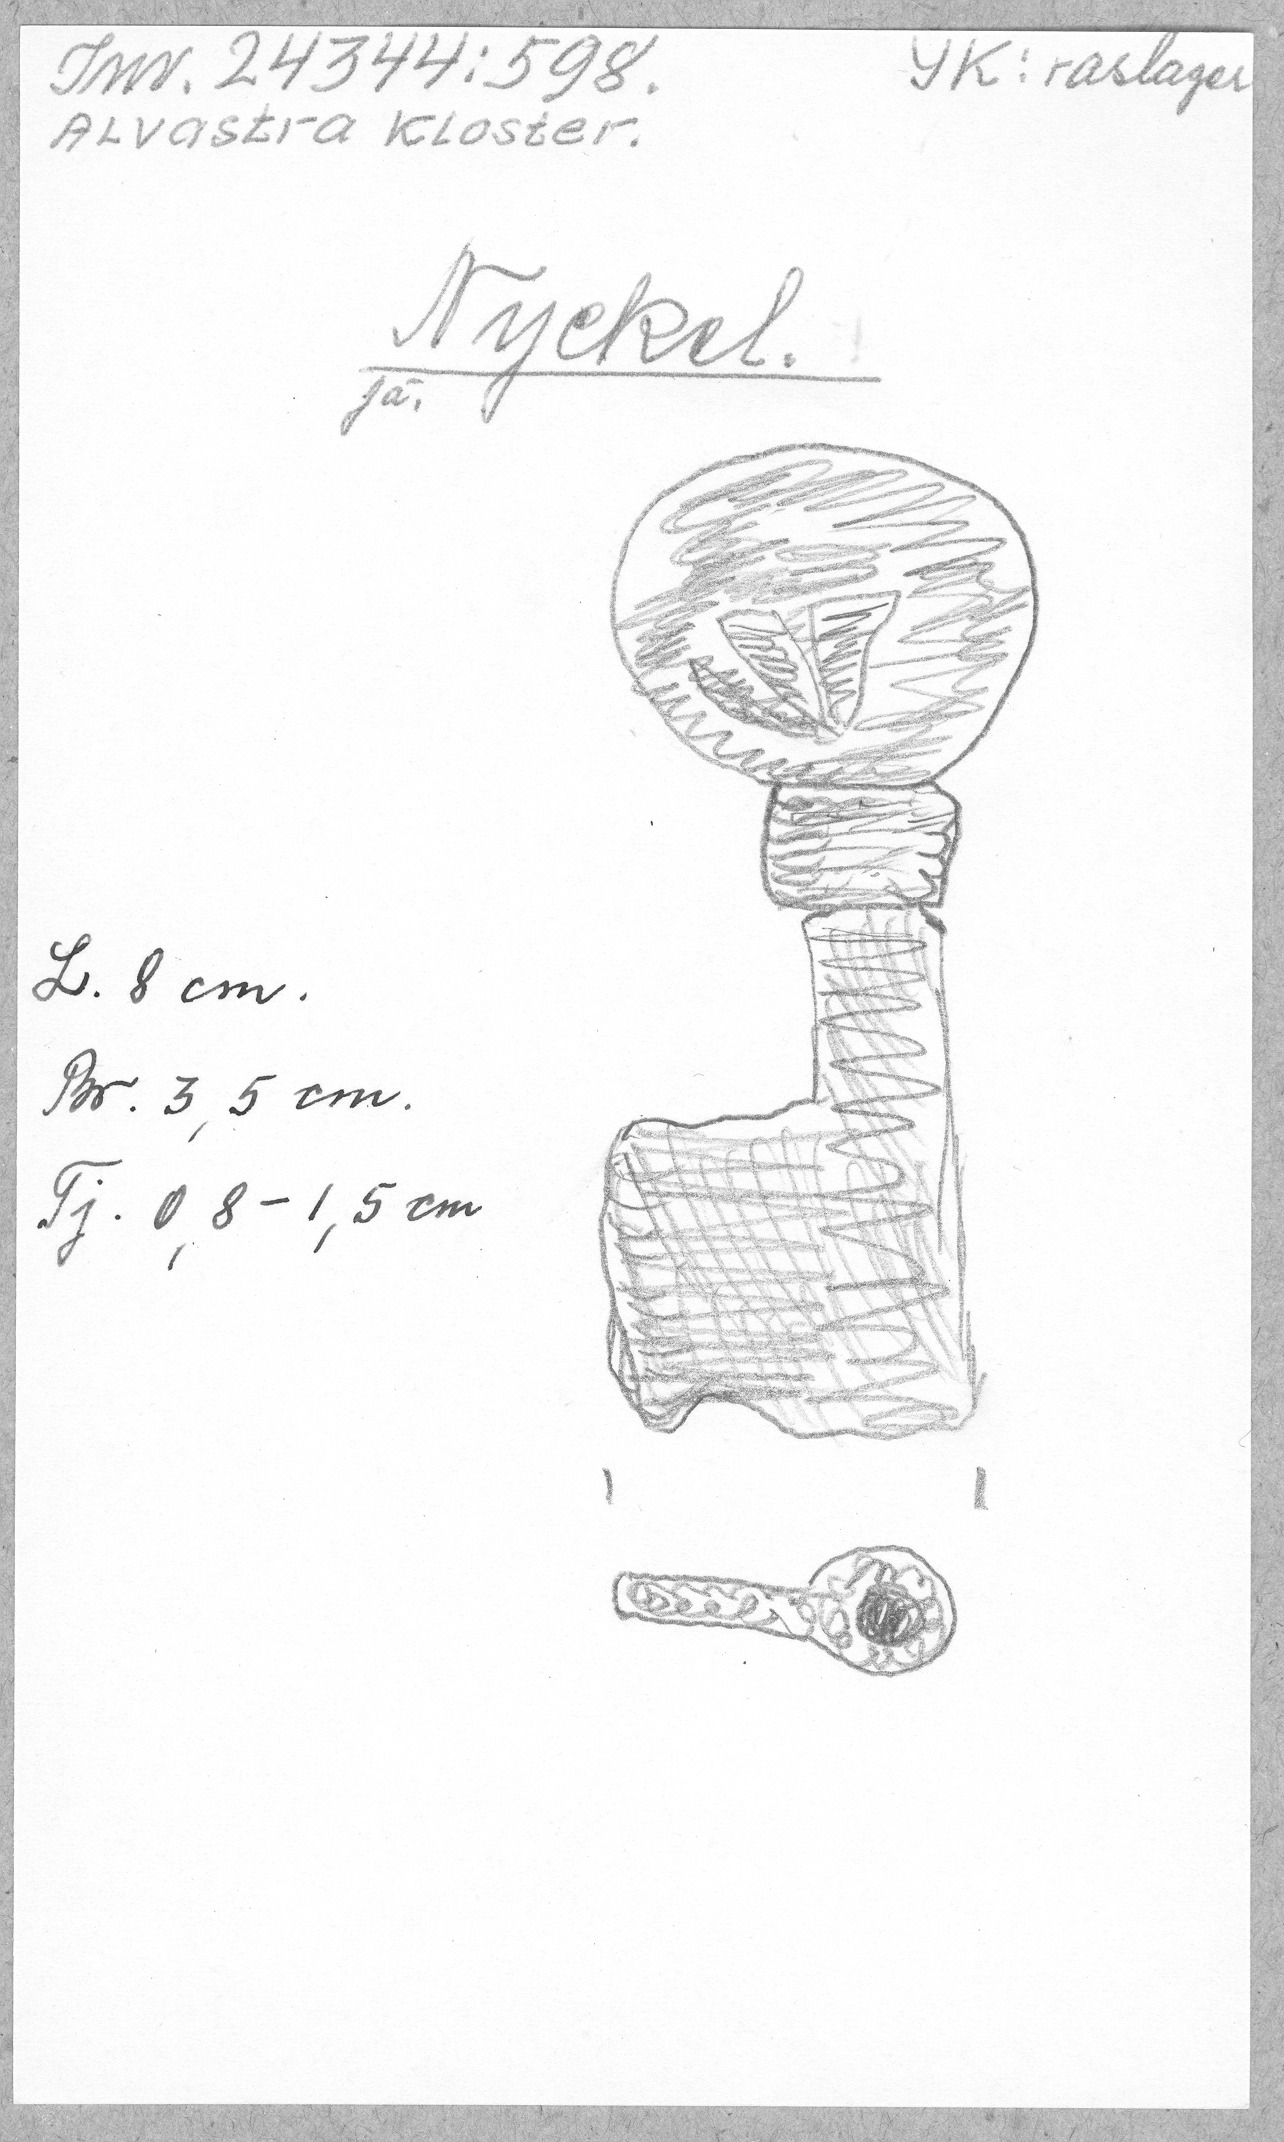 Inv. 24344:598.
YK: raslager
Alvastra Kloster.
Nyckel.
jä.
L. 8 cm.
Br. 3,5 cm.
Tj. 0,8-1,5 cm